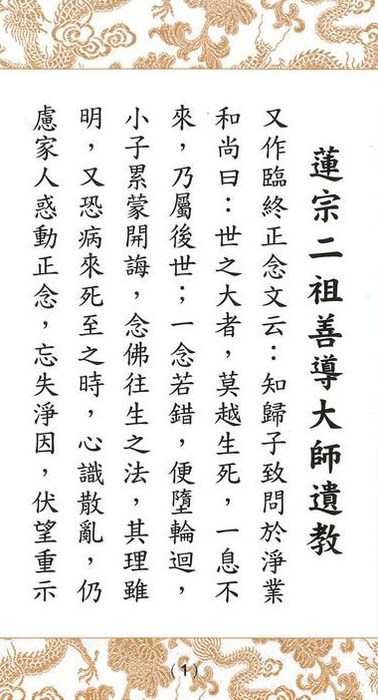 蓮宗二祖善導大師遺教
又作臨終正念文云：知歸子致問於淨業
和尚曰：世之大者，莫越生死，一息不
來，乃屬後世；一念若錯，便墮輪迴，
小子累蒙開誨，念佛往生之法，其理雖
明，又恐病來死至之時，心識散亂，仍
慮家人惑動正念，忘失淨因，伏望重示
(1)